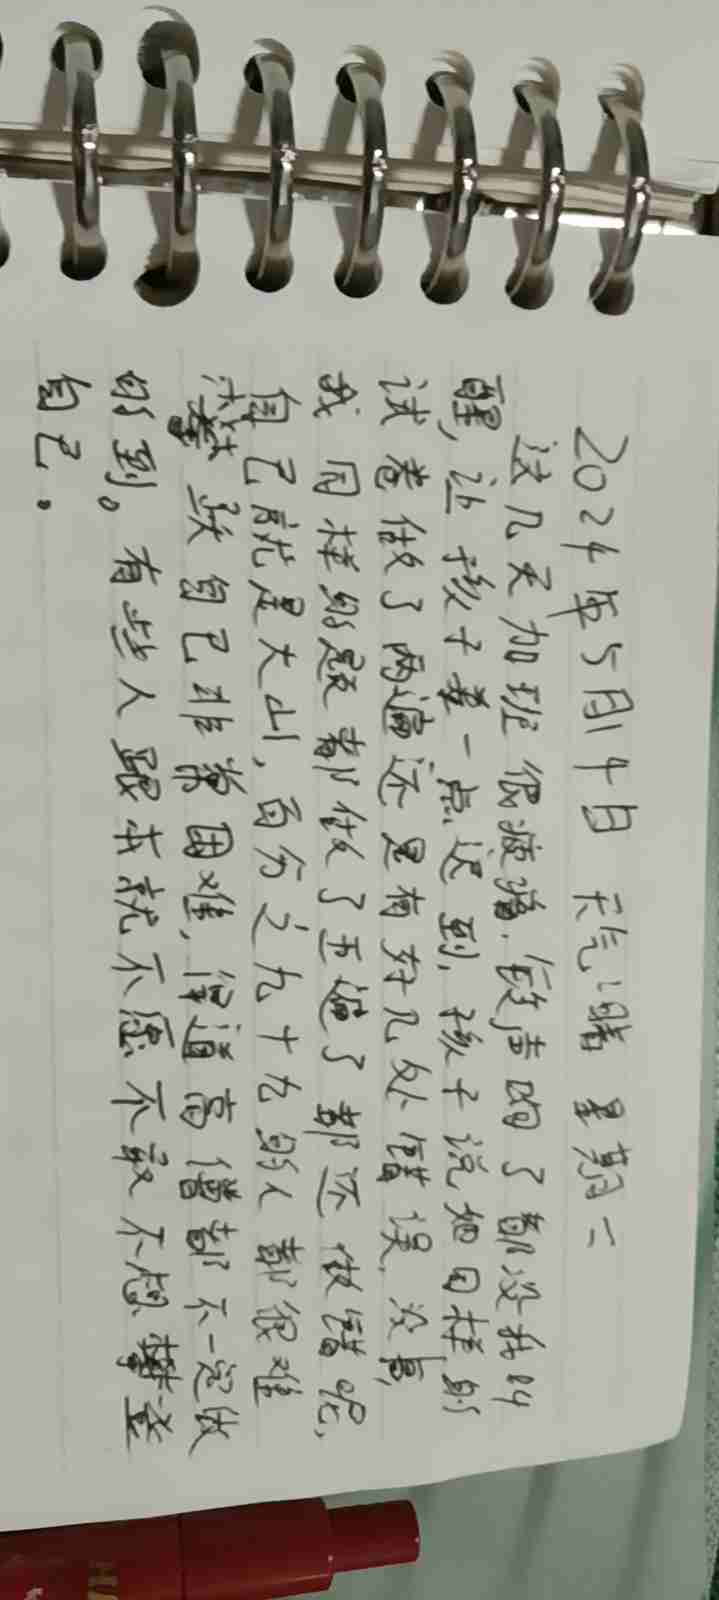 2024年5月14日 天气:晴 星期二
这几天加班很疲惫.铃声响了都没抖叫
醒,让孩子差一点迟到,孩子说她同样的
试卷做了两遍还是有好几处错误.没事,
我同样的题都做了五遍了都还做错呢,
自己就是大山,百分之九十九的人都很难
攀 跃自己非常困难,得道高僧都不一定做
的到。有些人跟本就不愿不敢不想攀登
自己.
HA